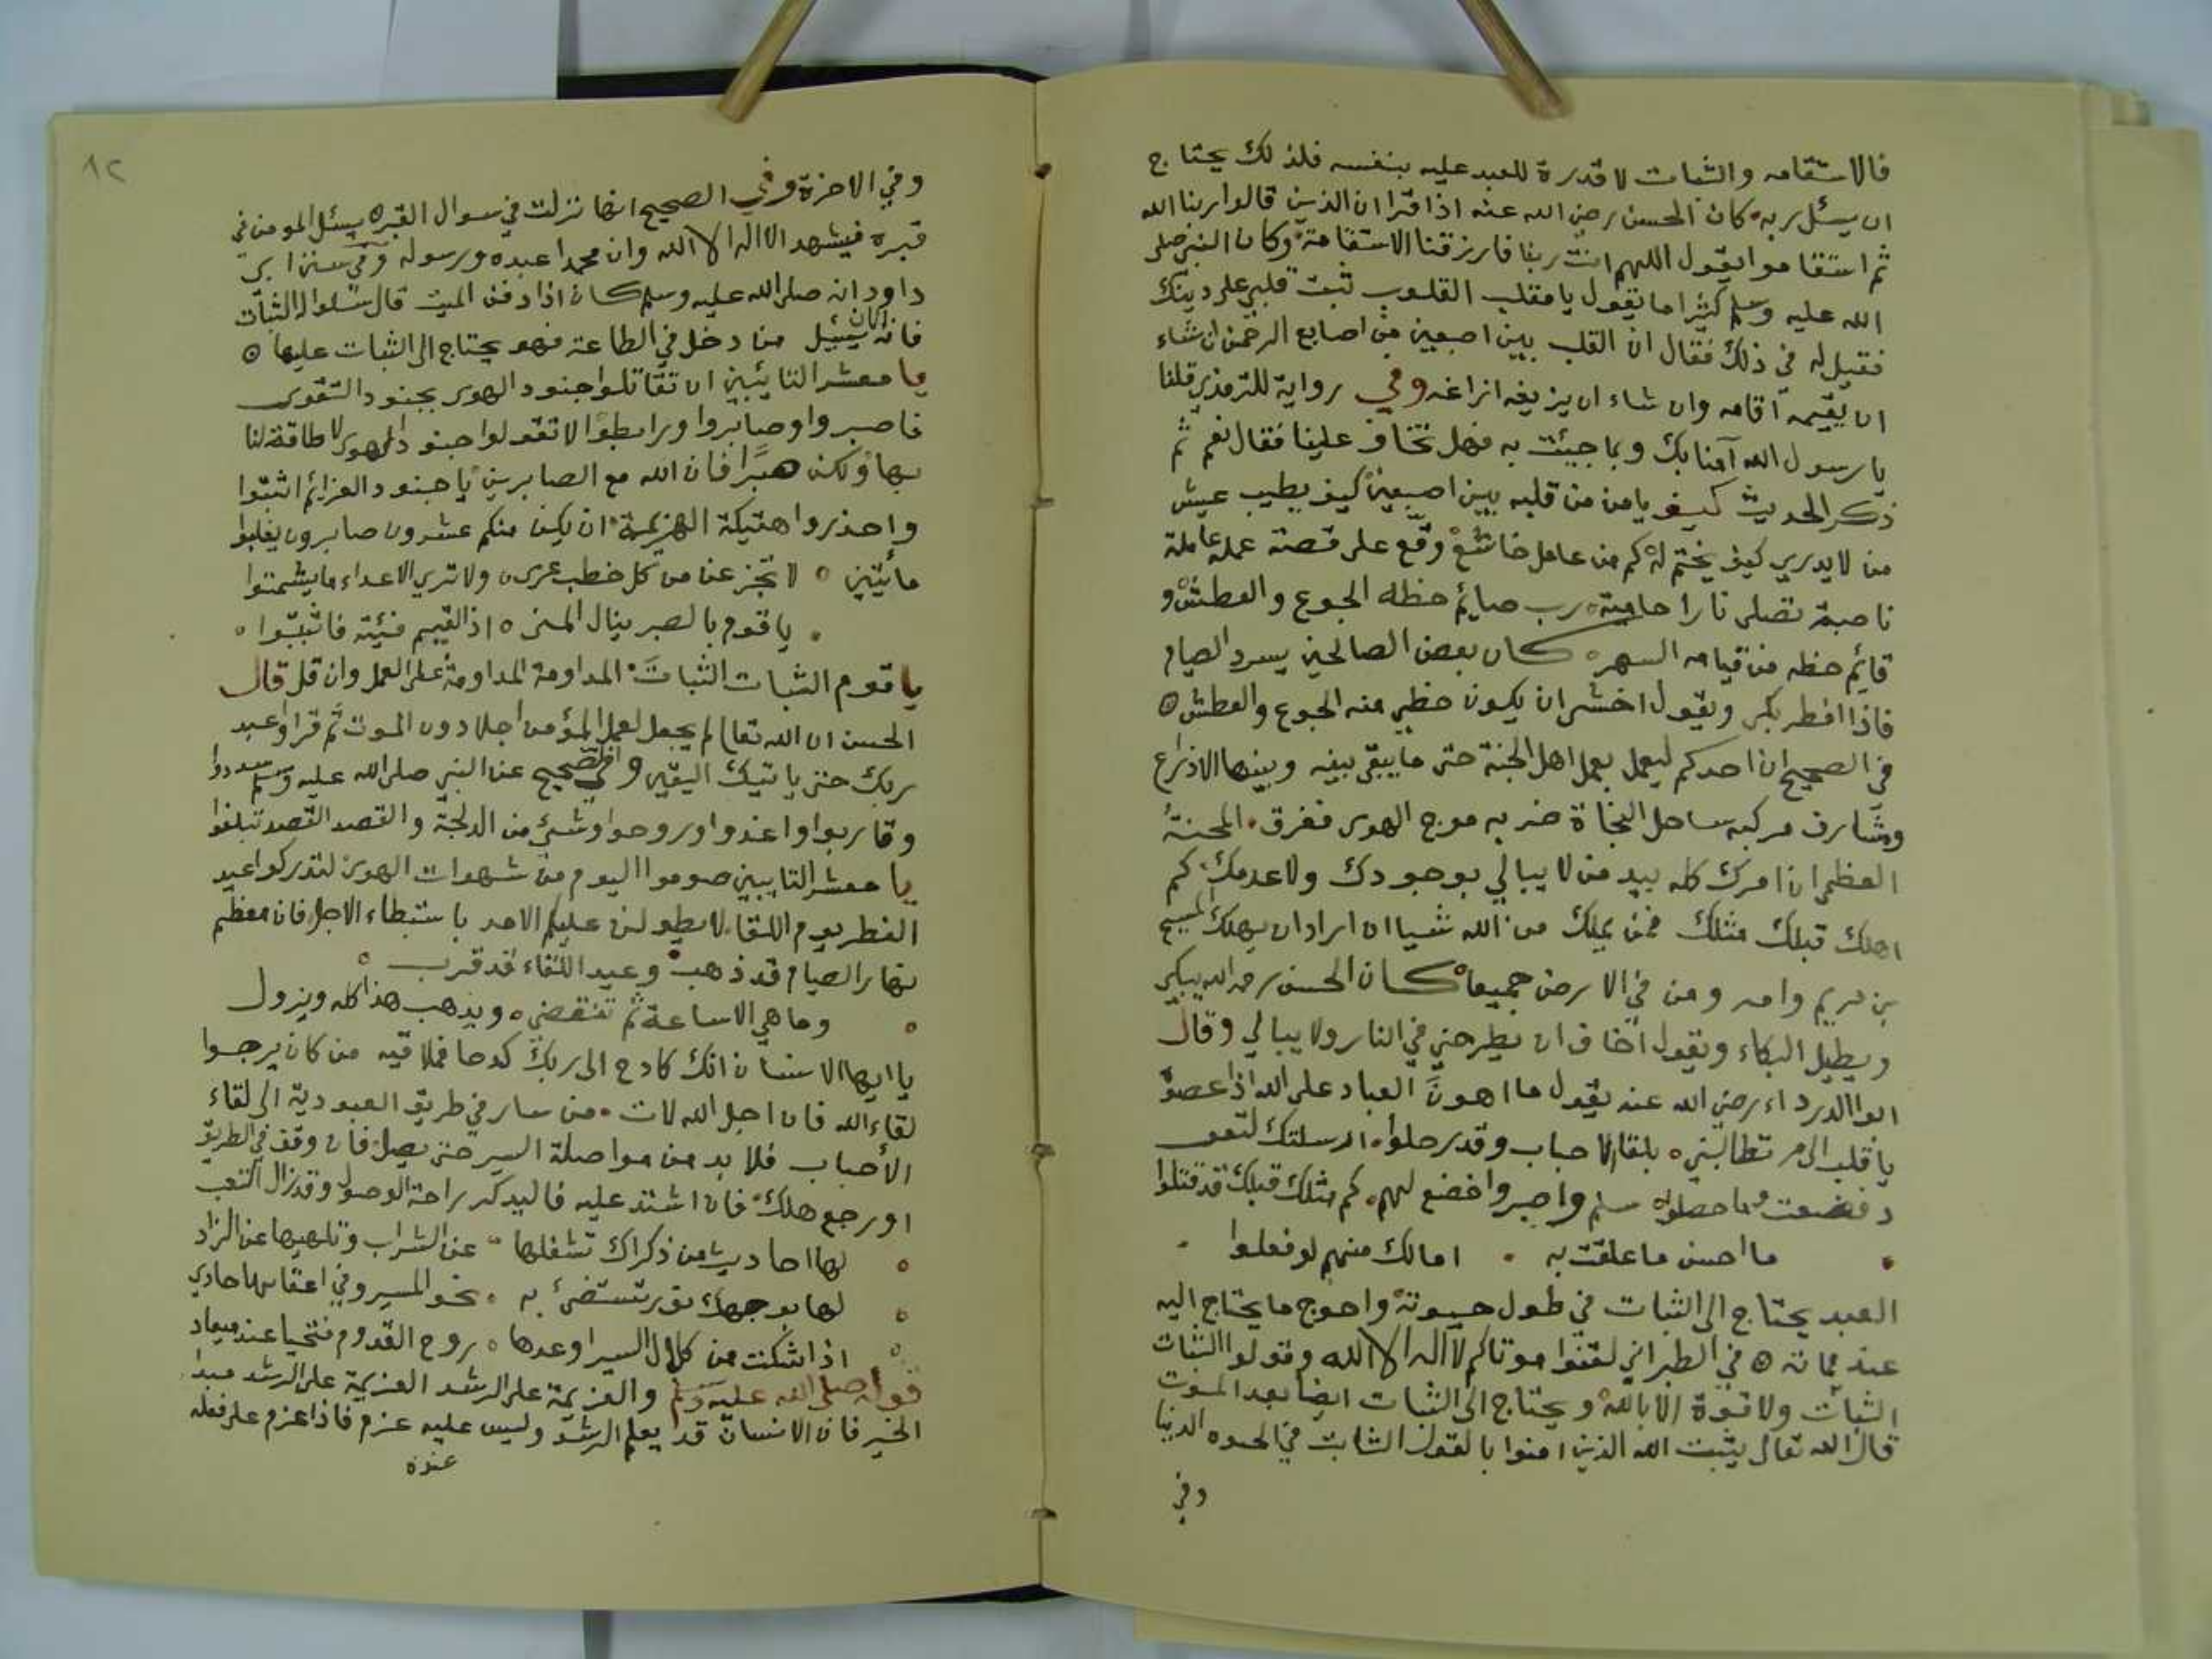 فالاستقامه والثبات لا قدرة للعبد عليه بنفسه فلذلك يحتاج
ان يسئل ربه كان الحسن رضي الله عنه اذا قرا ان الذين قالوا ربنا الله
ثم استقاموا يقول اللهم انت ربنا فارزقنا الاستقامة وكان النبي صلى
الله عليه وسلم كثيرا ما يقول يا مقلب القلوب ثبت قلبي على دينك
فقيل له في ذلك فقال ان القلب بين اصبعين من اصابع الرحمن ان شاء
ان يقيمه اقامه وان شاء ان يزيغه ازاغه وفي رواية للترمذي قلنا
يا رسول الله آمنا بك وبما جيئت به فهل تخاف علينا فقال نعم ثم
ذكر الحديث كيف يامن من قلبه بين اصبعين كيف يطيب عيش
من لا يدري كيف يختم له كم من عامل خاشع وقع على قصته عمله عاملة
ناصبة تصلى نارا حامية رب صايم حظه الجوع والعطش و
قائم حظه من قيامه السهر كان بعض الصالحين يسرد الصيام
فاذا افطر بكى ويقول اخشى ان يكون حظي منه الجوع والعطش
في الصحيح ان احدكم ليعمل بعمل اهل الجنة حتى ما يبقى بينه وبينها الا ذراع
وشارف مركبه ساحل النجاة ضربه موج الهوى فغرق المحنة
العظمى ان امرك كله بيد من لا يبالي بوجودك ولا عدمك كم
اهلك قبلك مثلك فمن يملك من الله شيا ان اراد ان يهلك المسيح
بن مريم وامه ومن في الارض جميعا كان الحسن رحمه الله يبكي
ويطيل البكاء ويقول اخاف ان يطرحني في النار ولا يبالي وقال
ابوا الدرداء رضي الله عنه يقول ما اهون العباد على الله اذا عصوا
يا قلب الى م تطالبني بلقا الاحباب وقد رحلوا ارسلتك
وما حصلوا سلم واصبر واخضع لهم كم مثلك قبلك قد قتلوا
ما احسن ما علقت به امالك منهم لو فعلوا
العبد يحتاج الى الثبات في طول حيوته واحوج ما يحتاج اليه
عند مماته في الطبراني لقنوا موتاكم لا اله الا الله وقولوا الثبات
الثبات ولا قوة الا بالله ويحتاج الى الثبات ايضا بعد الموت
قال الله تعالى يثبت الله الذين امنوا بالقول الثابت في الحيوه الدنيا
وفي
٨٢
وفي الاخرة وفي الصحيح انها نزلت في سوال القبر يسئل المومن في
قبره فيشهد الا اله الا الله وان محمدا عبده ورسوله وفي سنن ابي
داود انه صلى الله عليه وسلم كان اذا دفن الميت قال سلوا له الثبات
فانه الان يسئل من دخل في الطاعة فهو يحتاج الى الثبات عليها
يا معشر التائبين ان تقاتلوا جنود الهوى بجنود التقوى
فاصبروا وصابروا ورابطوا لا تقولوا جنود الهوى لا طاقة لنا
بها ولكن صبرا فان الله مع الصابرين يا جنود العزائم اثبتوا
واحذروا هتيكة الهزيمة ان يكن منكم عشرون صابرون يغلبوا
مأتين لا تجزعن من كل خطب عرى ولا تري الاعداء ما يشمتوا
يا قوم بالصبر ينال المنى اذ القيم فئة فاثبتوا
يا قوم الثبات الثبات المداومة المداومة على العمل وان قل قال
الحسن ان الله تعالى لم يجعل لعمل المؤمن اجلا دون الموت ثم قرا وعبد
ربك حتى ياتيك اليقين وفي الصحيح عن النبي صلى الله عليه وسلم سددوا
وقاربوا واغدوا وروحوا وشيئ من الدلجة والقصد القصد تبلغوا
يا معشر التايبين صوموا اليوم من شهوات الهوى لتدركوا عيد
الفطر يوم اللقا لا يطولن عليكم الامد باستبطاء الاجل فان معظم
نهار الصيام قد ذهب وعيد اللقاء قد قرب
وما هي الا ساعة ثم تنقضي ويذهب هذا كله ويزول
يا ايها الانسان انك كادح الى ربك كدحا فملاقيه من كان يرجوا
لقاء الله فان اجل الله لات من سار في طريق العبودية الى لقاء
الأحباب فلا بد من مواصلة السير حتى يصل فان وقف في الطريق
او رجع هلك فان اشتد عليه فاليدكر راحة الوصول وقد زال التعب
لها احاديث من ذكراك تشغلها عن الشراب وتلهيها عن الزاد
لها بوجهك نور تستضئ به نحو المسير وفي اعقابها حادي
اذا شكت من كلال السير اوعدها روح القدوم فتحيا عند ميعاد
قوله صلى الله عليه وسلم والعزيمة على الرشد العزيمة على الرشد مبدا
الخير فان الانسان قد يعلم الرشد وليس عليه عزم فاذا عزم على فعله